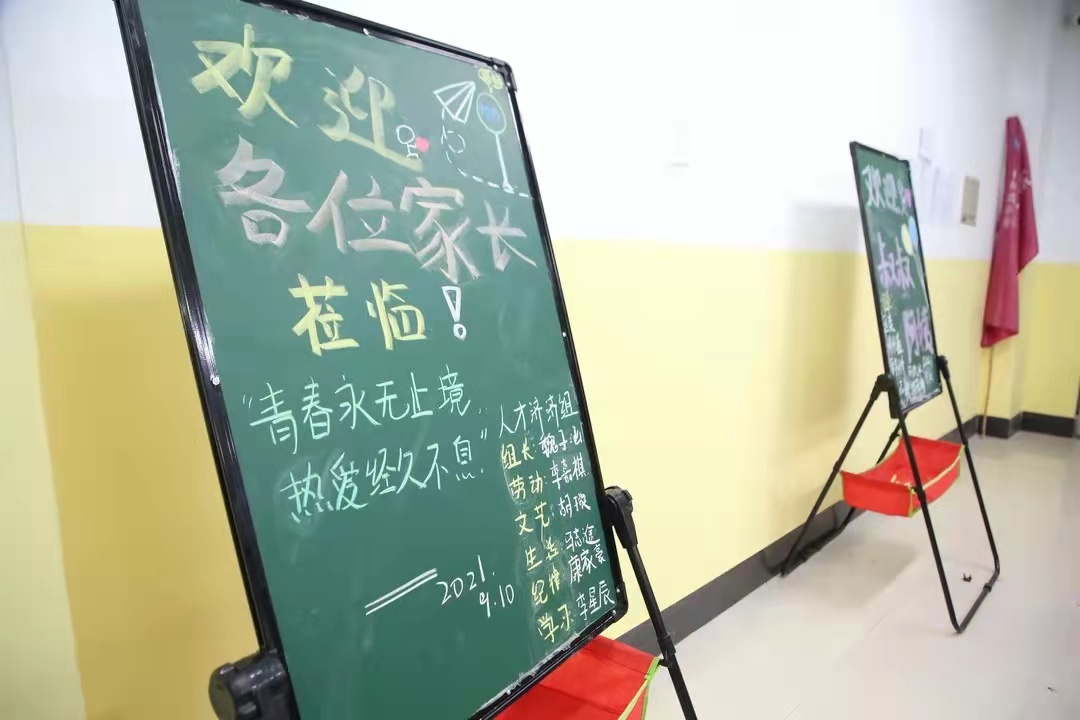 欢迎
各位家长
莅临!
"青春永无止境
热爱经久不息"
2021.
9.10
人才济济组
组长:魏子涵
劳动:李嘉棋
文艺:胡璇
生活:
纪律:康家豪
学习:李星辰
欢迎
叔叔
阿姨